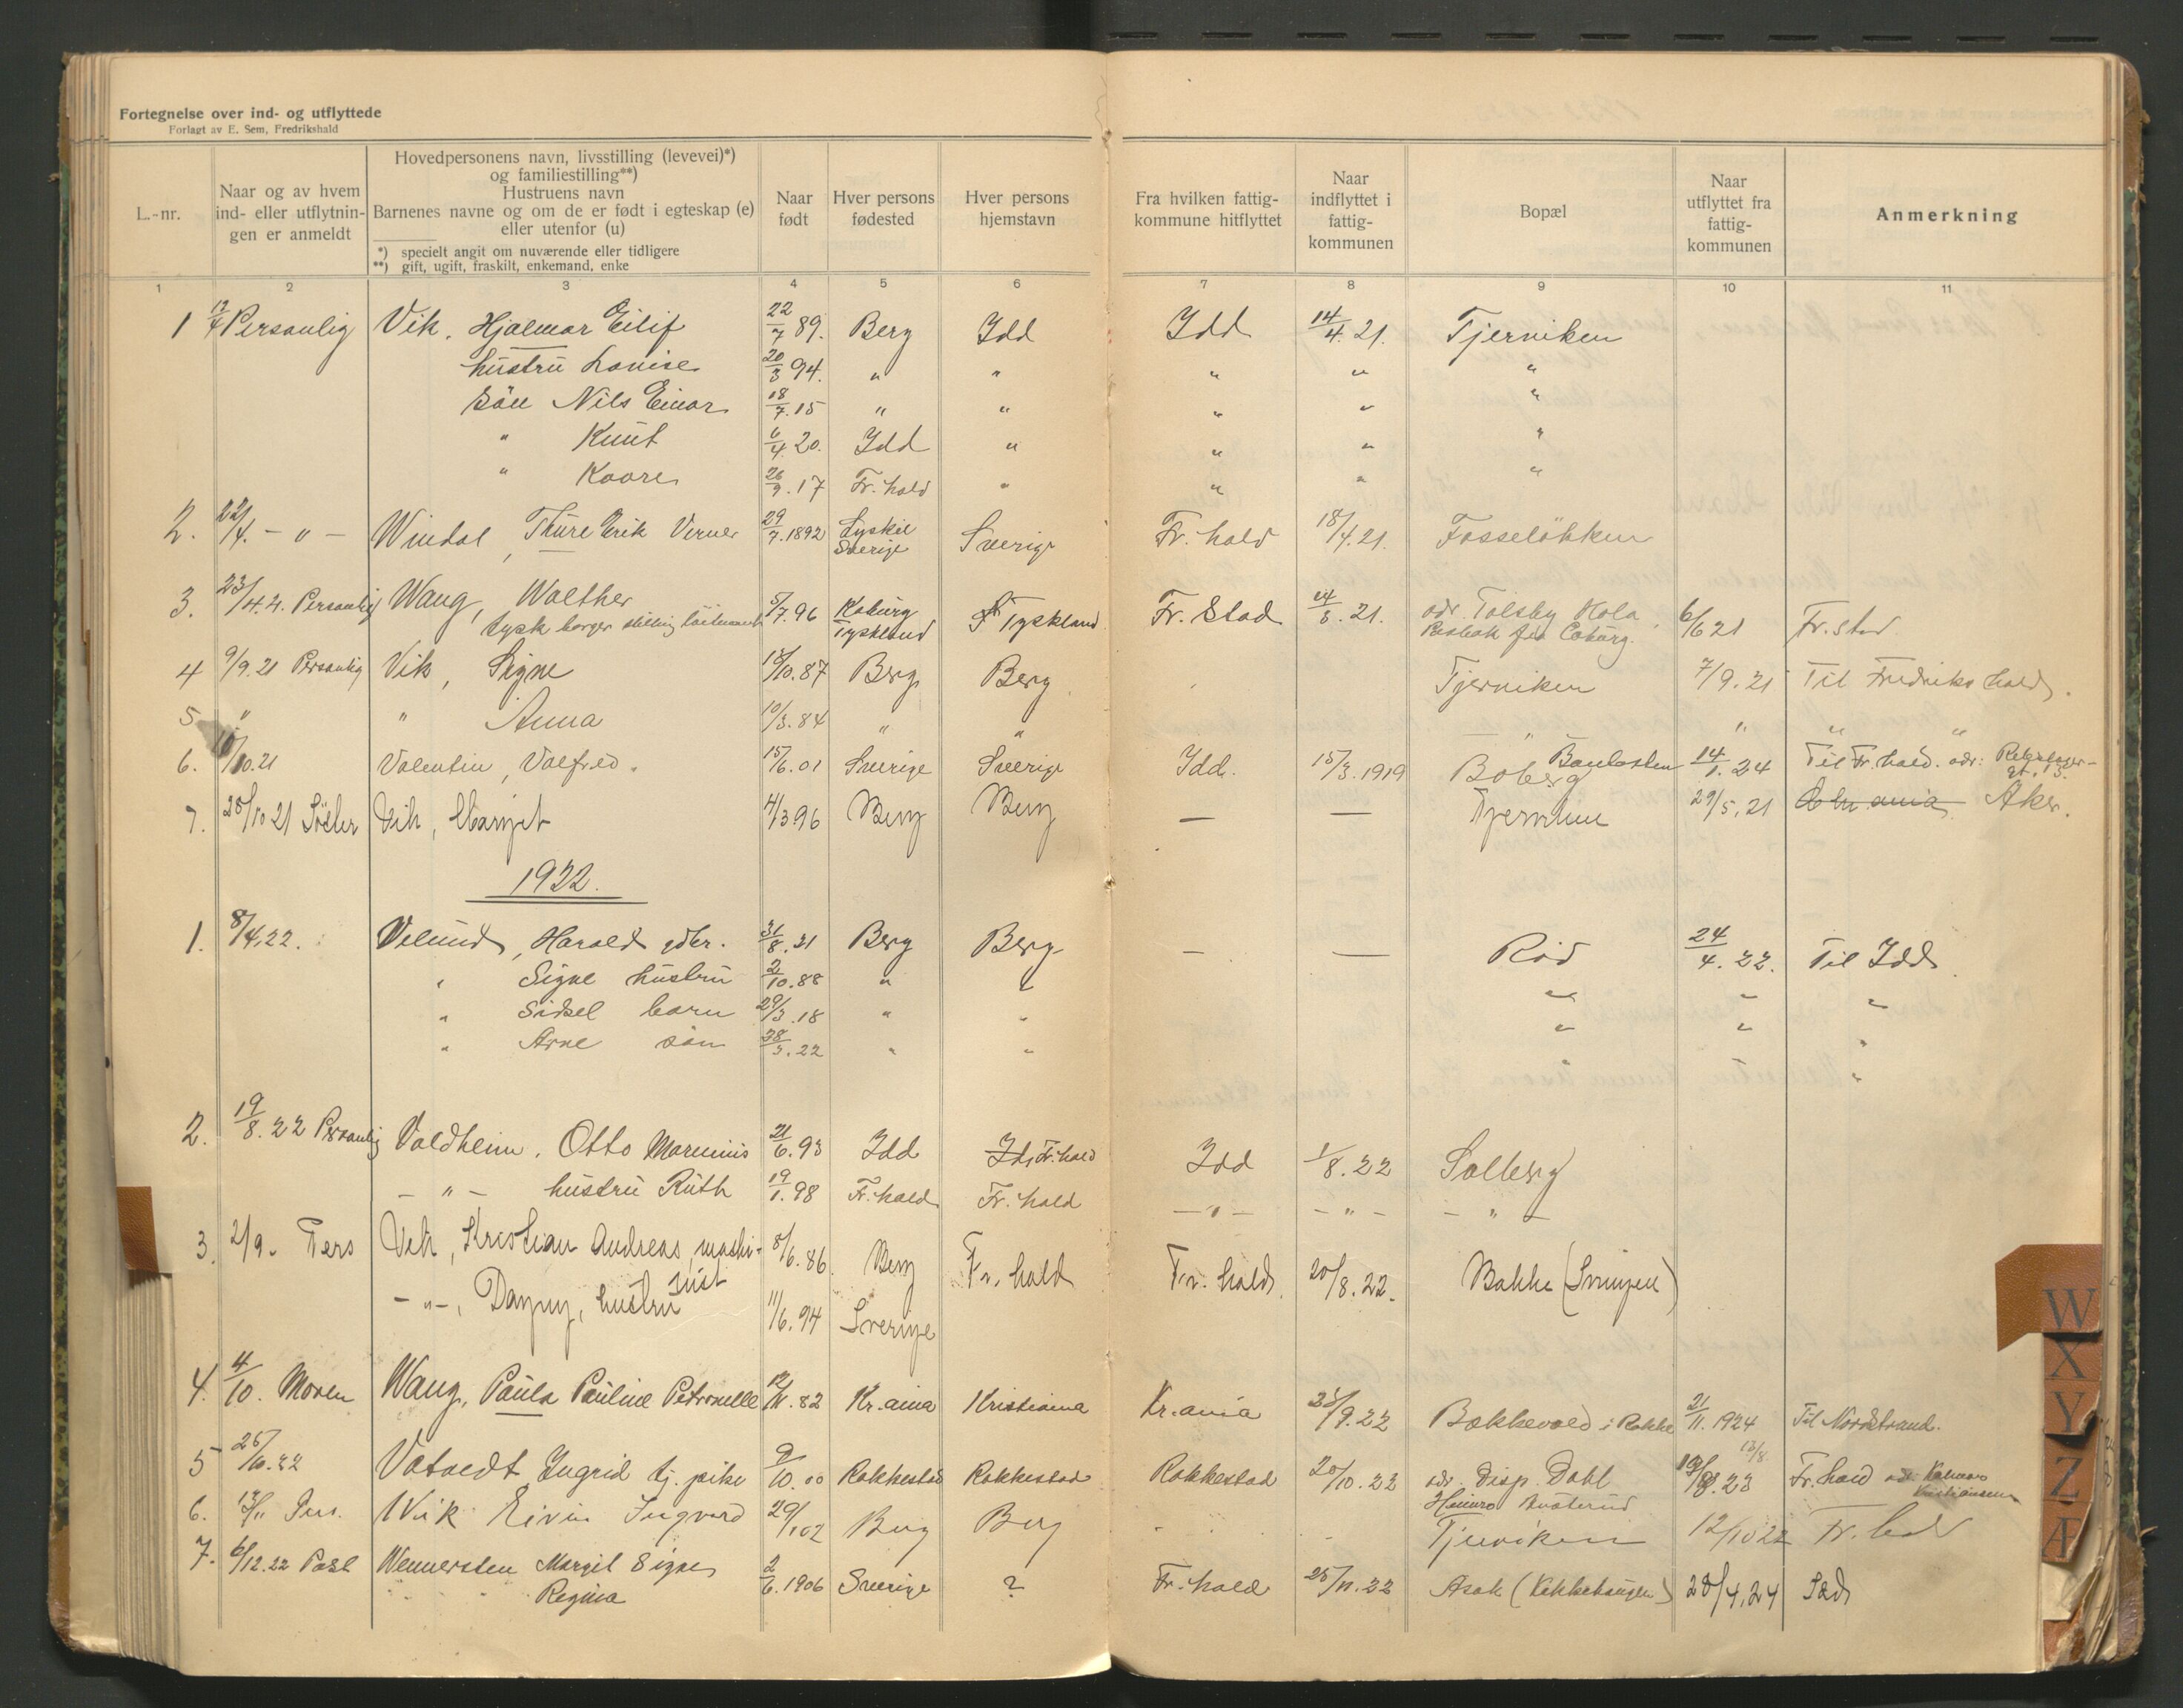 Fortegnelse over ind- og utflyttede
Forlagt av E. Sem, Fredrikshald
L.-nr.
Naar og av hvem ind- eller utflytnin- gen er anmeldt
Hovedpersonens navn, livsstilling (levevei)*)
og familiestilling**)
Hustruens navn
Barnenes navne og om de er født i egteskap (e)
eller utenfor (u)
*) specielt angit om nuværende eller tidligere
**) gift, ugift, fraskilt, enkemand, enke
Naar født
Hver persons fødested
Hver persons hjemstavn
Fra hvilken fattig- kommune hitflyttet
Naar indflyttet i fattig- kommunen
Bopæl
Naar utflyttet fra fattig- kommunen
Anmerkning
1 2 3 4 5 6 7 8 9 10 11
1 12/4 Personlig Vik, Hjalmar Eilif 22/7 89. Berg Idd Idd 14/4. 21. Tjerviken
hustru Lovise 20/3 94. " " " " "
Sön Nils Einar 18/7. 15 " " " " "
" Knut 6/4 20. Idd " " " "
" Kaare 26/9. 17 Fr. hald " " " "
2. 22/4. - " - Windal, Thure Erik Verner 29/7. 1892 Lyskil Sverige Sverige Fr. hald 18/4. 21. Fosselökken
3. 23/4. 21. Personlig Wang, Walther 5/7. 96 Koburg Tyskland Tyskland Fr. Stad 21. adr. Tolsby Kola 6/6 21 Fr. stad
tysk borger stilling löitnant Coburg.
4 9/9. 21 Personlig Vik, Signe 10. 87 Berg Berg Tjerviken 7/9. 21 Til Fredrikshald.
5. " " Anna 10/3. 84 " " " " " "
6. 10. 21 Valentin, Valfred. 15/6. 01 Sverige Sverige Idd. 15/3. 1919 Boberg 14/1. 24 Til Fr. hald. adr:
7. 28/10 21 Söster Vik, Margit 4/3 96 Berg Berg — — Tjerviken 29/5. 21 Aker.
1922.
1. 8/4. 22. Velund, Harald gbr. 31/8. 21 Berg Berg — — Röd 24/4. 22. Til Idd
" Signe hustru 2/10. 88 " " " " "
" Sidsel barn 29/3. 18 " " " " "
" Arne sön 28/3. 22 " " " "
2. 19/8. 22 Personlig Valdheim, Otto Marenius 21/6. 93 Idd Idd Fr. hald Idd 1/8. 22 Solberg
- " - hustru Ruth 19/1. 98 Fr. hald Fr. hald - " - - " - - " -
3. 2/9. Pers Vik, Kristian Andreas, maski- 8/6. 86 Berg Fr. hald Fr. hald 20/8. 22. Bakke (Svingen)
nist
- " -, Dagny, hustru 11/6. 94 Sverige
4. 4/10. Moren Wang, Paula Pauline Petronelle 12/11. 82 Kr.ania Kristiania Kr.ania 9. 22 Bækkevold i Rokke 21/11. 1924 Til Nordstrand.
5 10. 22 Ingrid tj. pike 9/10. 00 Rakkestad Rakkestad Rakkestad 20/10. 22 adr. Disp. Dahl 8. 23 Fr. hald adr Kalmar
Kristiansen
6. Pers. Wik Eivin Ingvard 29/1 02 Berg Berg Tjerviken 12/10 22 Fr. hald
7. 6/12. 22 Post Wennersten Margit Signe 2/6. 1906 Sverige ? Fr. hald 25/11. 22 Asak (Kekkehaugen) 28/4. 24 Idd
" " Regina
W
X
Y
Z
Æ